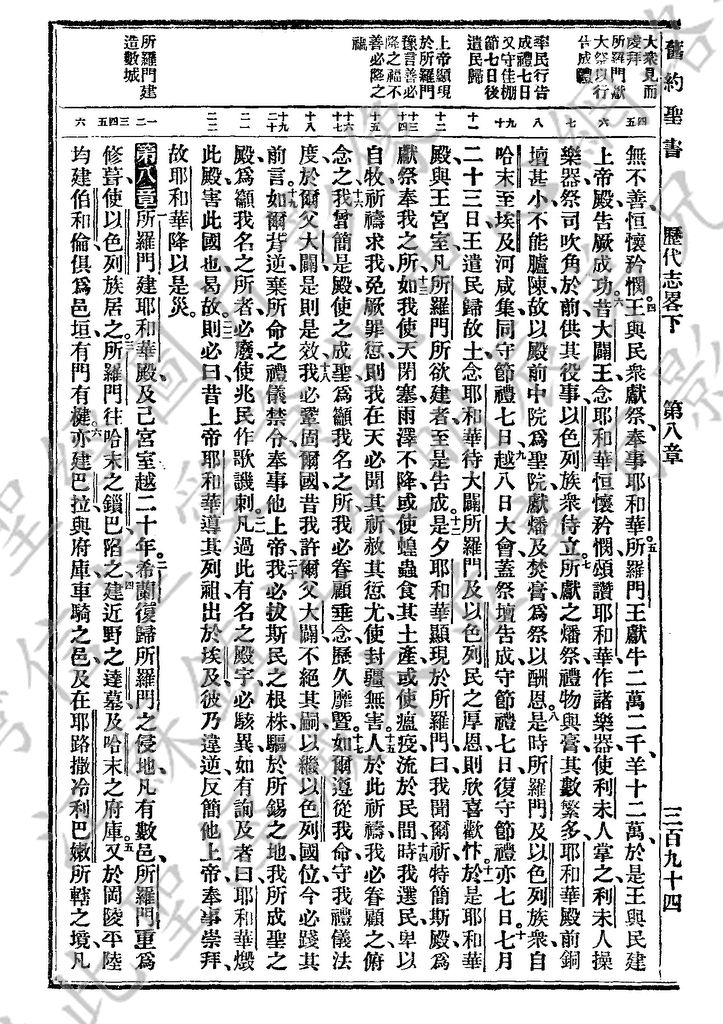 舊約聖書 歷代志畧下 第八章 三百九十四
大衆見而
虔拜
所羅門獻
大祭以行
告成禮
率民行告
成禮七日
又守住棚
節七日後
遣民歸
上帝顯現
於所羅門
豫言善必
降之福不
善必降之
禍
所羅門建
造數城
無不善恒懷矜憫四王與民衆獻祭奉事耶和華五所羅門王獻牛二萬二千羊十二萬於是王與民建
上帝殿告厥成功六昔大闢王念耶和華恒懷矜憫頌讚耶和華作諸樂器使利未人掌之利未人操
樂器祭司吹角於前供其役事以色列族衆侍立七所獻之燔祭禮物與膏其數繁多耶和華殿前銅
壇甚小不能臚陳故以殿前中院爲聖院獻燔及焚膏爲祭以酬恩八是時所羅門及以色列族衆自
哈末至埃及河咸集同守節禮七日九越八日大會蓋祭壇告成守節禮七日復守節禮亦七日十七月
二十三日王遣民歸故土念耶和華待大闢所羅門及以色列民之厚恩則欣喜歡忭十一於是耶和華
殿與王宮室凡所羅門所欲建者至是告成十二是夕耶和華顯現於所羅門曰我聞爾祈特簡斯殿爲
獻祭奉我之所十三如我使天閉塞雨澤不降或使蝗蟲食其土產或使瘟疫流於民間十四時我選民卑以
自牧祈禱求我免厥罪愆則我在天必聞其祈赦其愆尤使封疆無害十五人於此祈禱我必眷顧之俯
念之十六我曾簡是殿使之成聖爲籲我名之所我必眷顧垂念歷久靡曁十七如爾遵從我命守我禮儀法
度於爾父大闢是則是效十八我必鞏固爾國昔我許爾父大闢不絕其嗣以繼以色列國位今必踐其
前言十九如爾背逆棄所命之禮儀禁令奉事他上帝二十我必拔斯民之根株驅於所錫之地我所成聖之
殿爲籲我名之所者必廢使兆民作歌譏刺二一凡過此有名之殿宇必駭異如有詢及者曰耶和華燬
此殿害此國也曷故二二則必曰昔上帝耶和華導其列祖出於埃及彼乃違逆反簡他上帝奉事崇拜
故耶和華降以是災
第八章一所羅門建耶和華殿及己宮室越二十年二希蘭復歸所羅門之侵地凡有數邑所羅門重爲
修葺使以色列族居之三所羅門往哈末之鎖巴陷之四建近野之達墓及哈末之府庫五又於岡陵平陸
均建伯和倫俱爲邑垣有門有楗六亦建巴拉與府庫車騎之邑及在耶路撒冷利巴嫩所轄之境凡